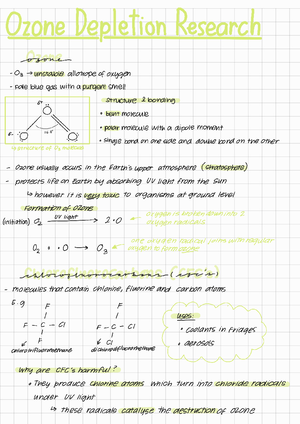 Ozone Depletion Research
Ozone
- O₃ → unstable allotrope of oxygen
- pale blue gas with a pungent smell
structure & bonding
• bent molecule
• polar molecule with a dipole moment
• single bond on one side and double bond on the other
- Ozone usually occurs in the Earth's upper atmosphere (stratosphere)
- protects life on Earth by absorbing UV light from the sun
↳ however it is very toxic to organisms at ground level
Formation of Ozone
(initiation) O₂ UV light → 2•O
oxygen is broken down into 2
oxygen radicals
O₂ + •O → O₃
one oxygen radical joins with regular
oxygen to form ozone
(CFC's)
- molecules that contain chlorine, fluorine and carbon atoms
E.g
F F
F - C - Cl F - C - Cl
F Cl
chlorotrifluoromethane dichlorodifluoromethane
uses:
• coolants in fridges
• aerosols
Why are CFC's harmful?
• They produce chlorine atoms which turn into chloride radicals
under UV light
↳ These radicals catalyse the destruction of ozone